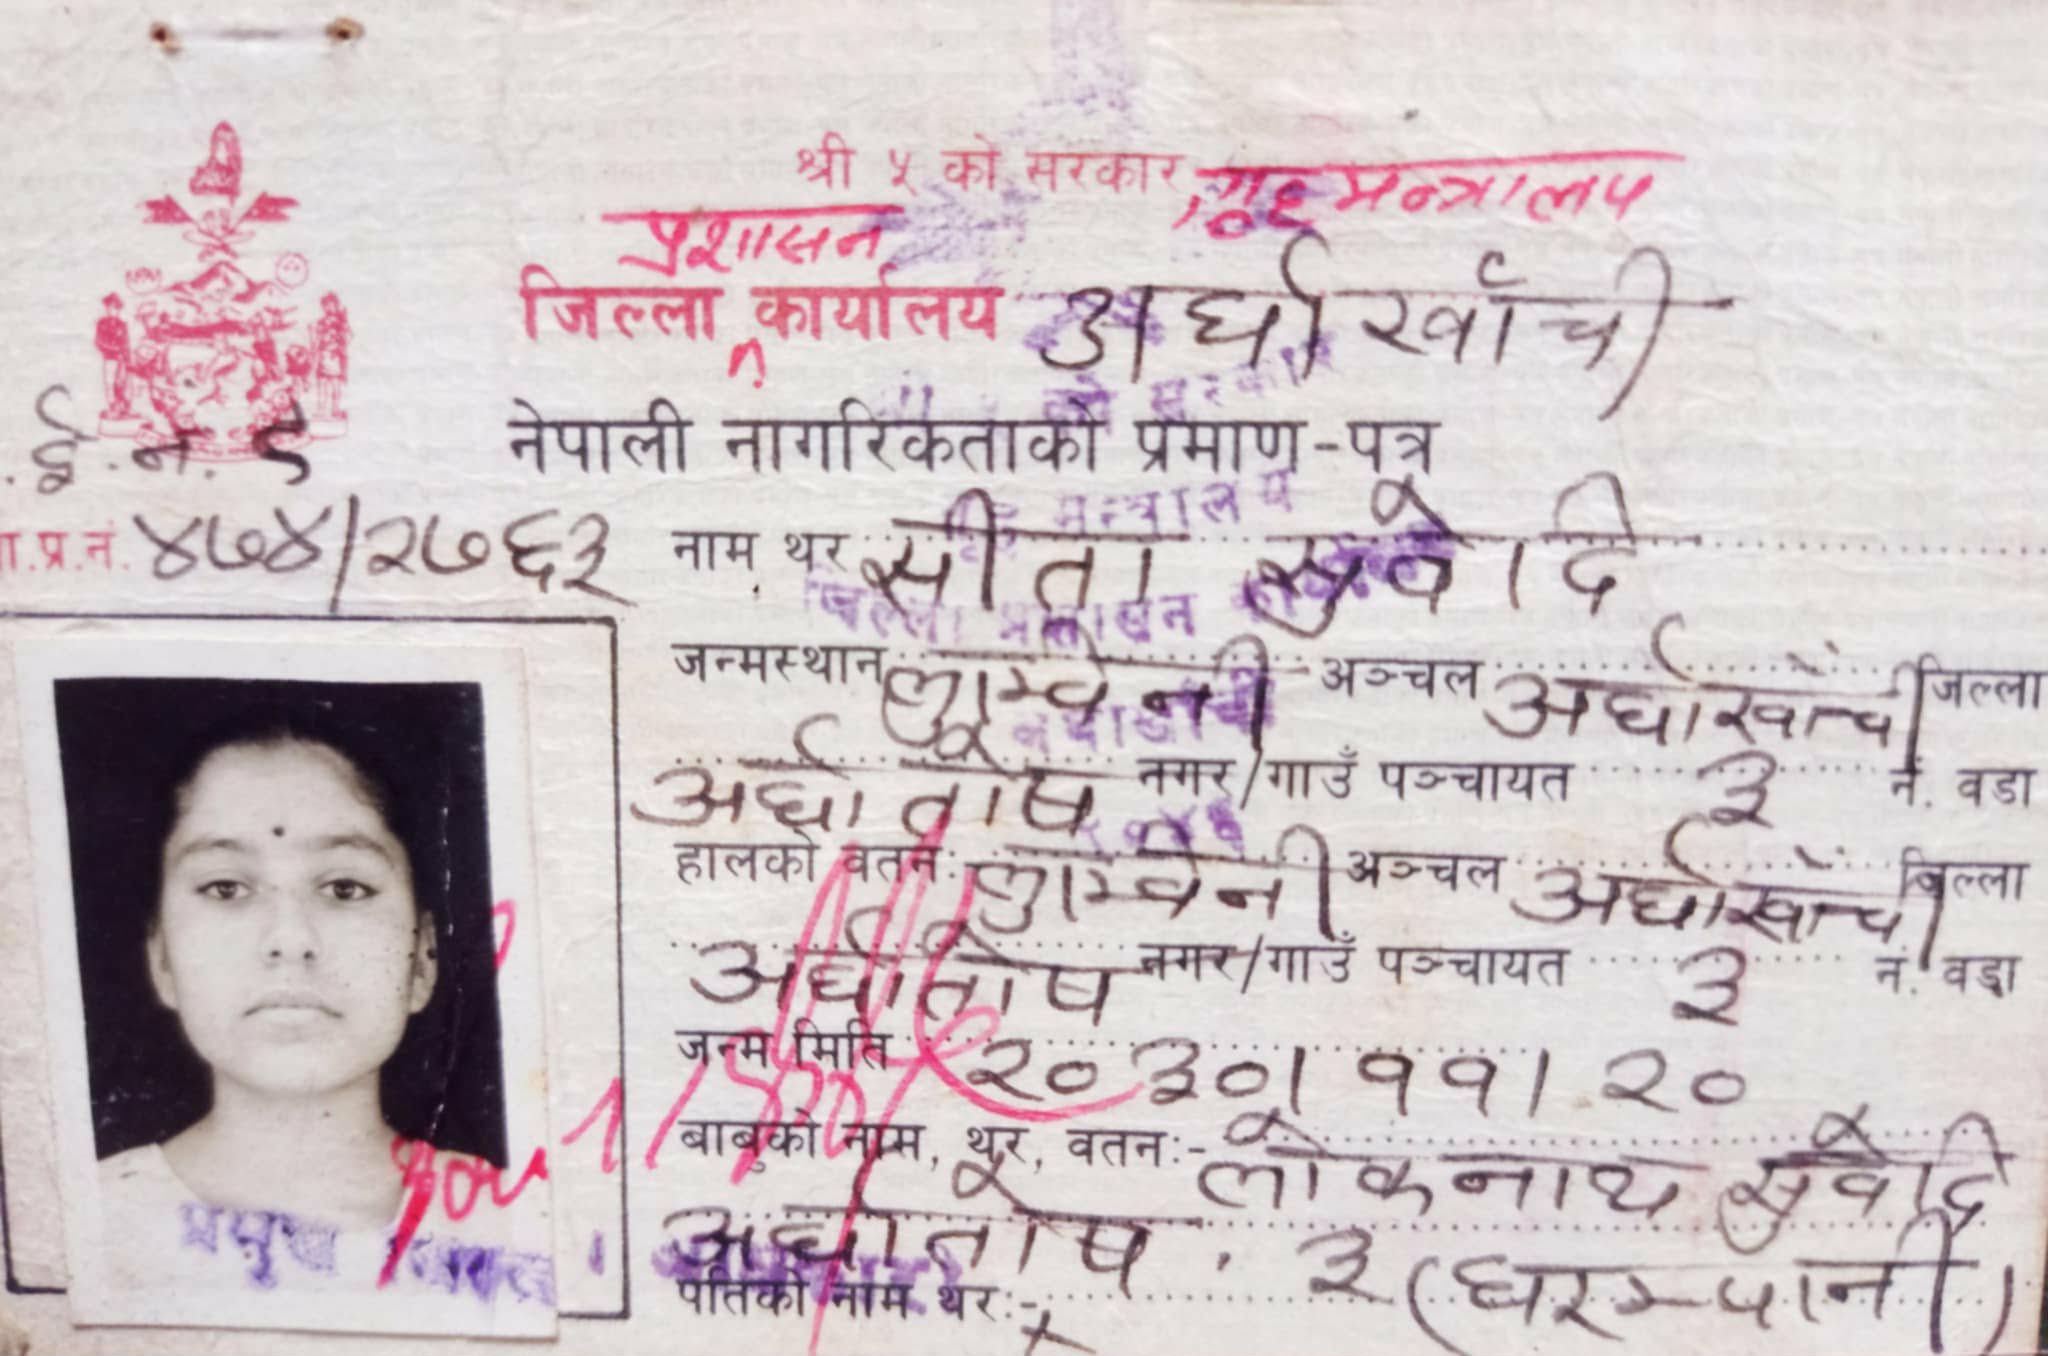 श्री ५ को सरकार, गृह मन्त्रालय
प्रशासन
जिल्ला कार्यालय अर्घाखाँची
नेपाली नागरिकताको प्रमाण-पत्र
ई. न. ९
ना.प्र.नं. ४७४/२७६३
नाम थर सीता सुवेदि
जन्मस्थान लुम्वेनी अञ्चल अर्घाखाँची जिल्ला
अर्घातोष नगर/गाउँ पञ्चायत ३ नं. वडा
हालको वतन: लुम्वेनी अञ्चल अर्घाखाँची जिल्ला
अर्घातोष नगर/गाउँ पञ्चायत ३ नं. वडा
जन्म मिति २०३०।११।२०
बाबुको नाम, थर, वतन:- लोकनाथ सुवेदि
अर्घातोष . ३ (घरम्पानी)
पतिको नाम थर:- ×
को सरकार
मन्त्रालय
जिल्ला प्रशासन
प्रमुख